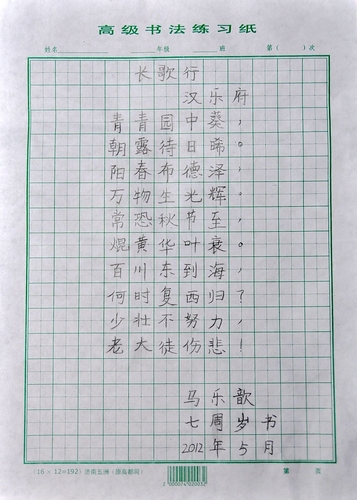 高级书法练习纸
姓名 年级 班 第( )次
长歌行
汉乐府
青青园中葵,
朝露待日晞。
阳春布德泽,
万物生光辉。
常恐秋节至,
焜黄华叶衰。
百川东到海,
何时复西归?
少壮不努力,
老大徒伤悲!
马乐歆
七周岁书
2012年5月
(16×12=192)
第 页